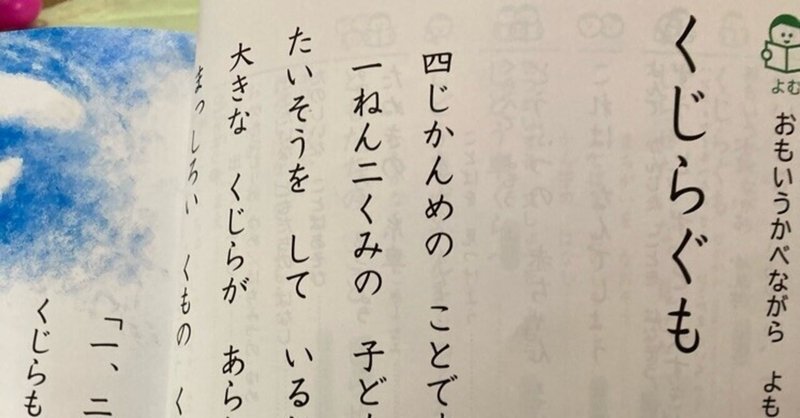 よむ
おもいうかべながら　よも
くじらぐも
四じかんめの　ことです
一ねん二くみの　子ども
たいそうを　して　いる
大きな　くじらが　あら
まっしろい　くもの　く
「一、二
くじらも